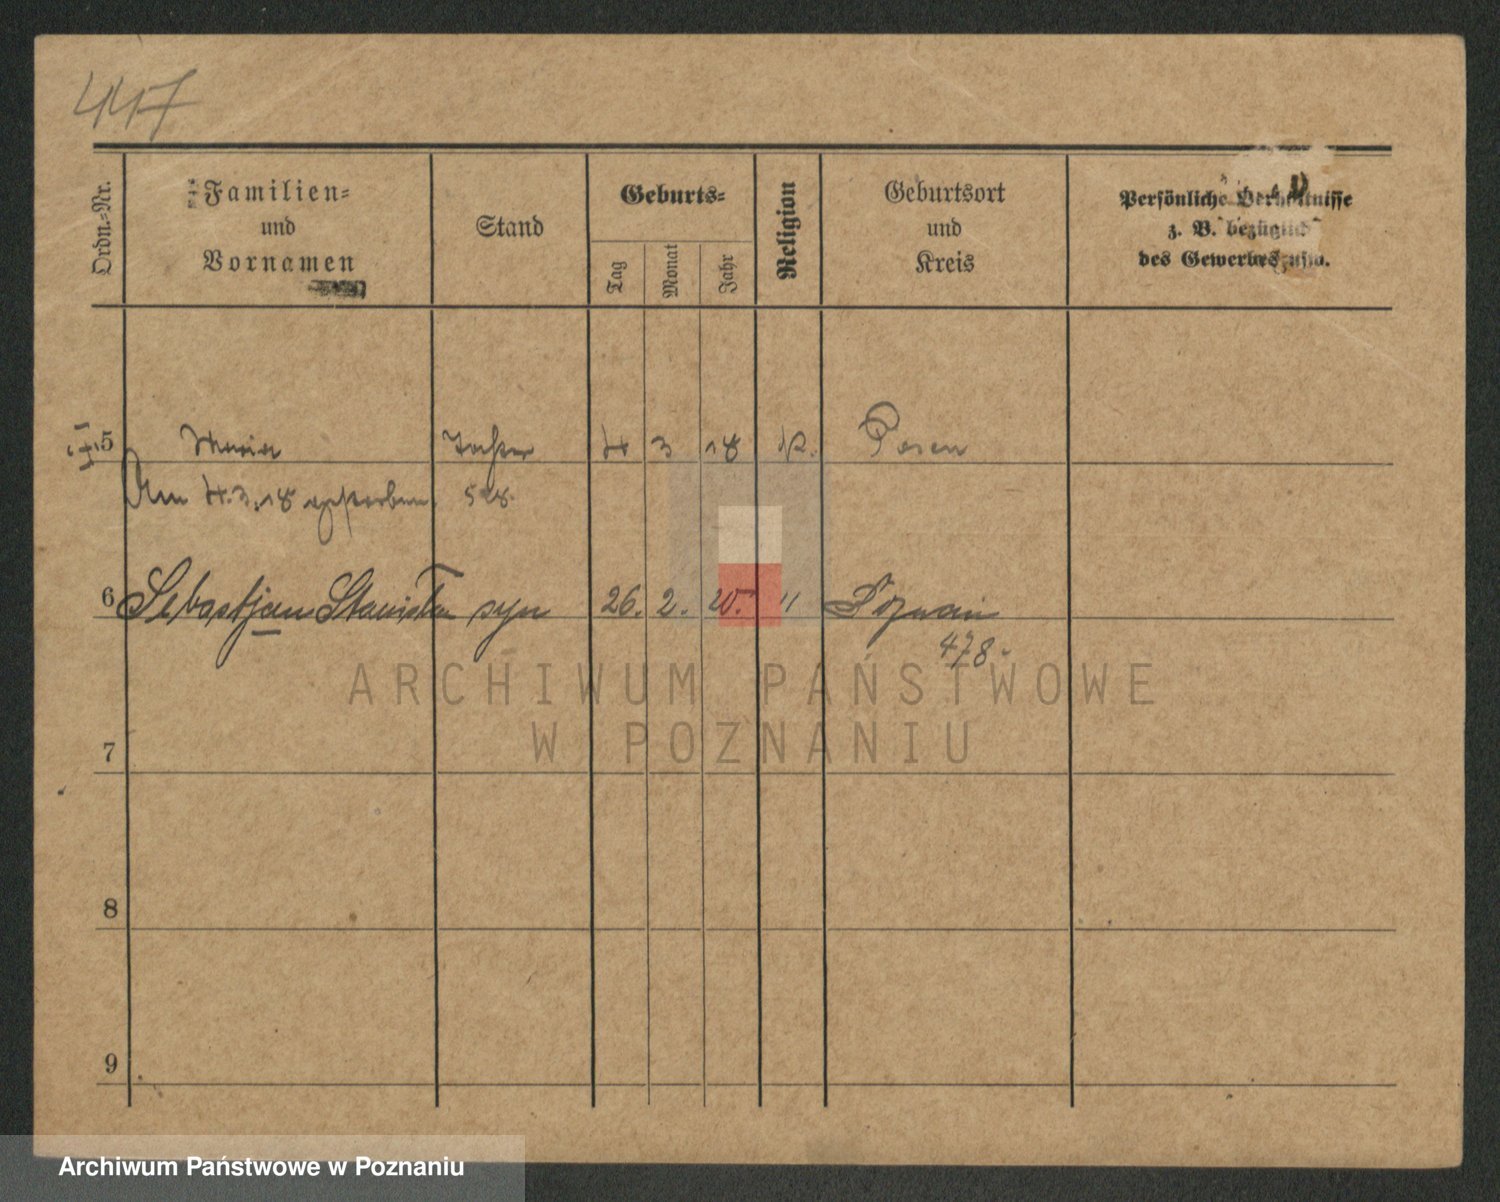 447
Ordn.-Nr.
Familien-
und
Vornamen
Stand
Geburts-
Tag
Monat
Jahr
Religion
Geburtsort
und
Kreis
Persönliche Verhältnisse
z. B. bezüglich
des Gewerbes usw.
5 Maria Tochter 4 3 18 k. Posen
Am 4.3.18 gestorben.
6 Sebastjan Stanisław syn 26. 2. 20. " Poznań
478.
7
8
9
ARCHIWUM PAŃSTWOWE
W POZNANIU
Archiwum Państwowe w Poznaniu